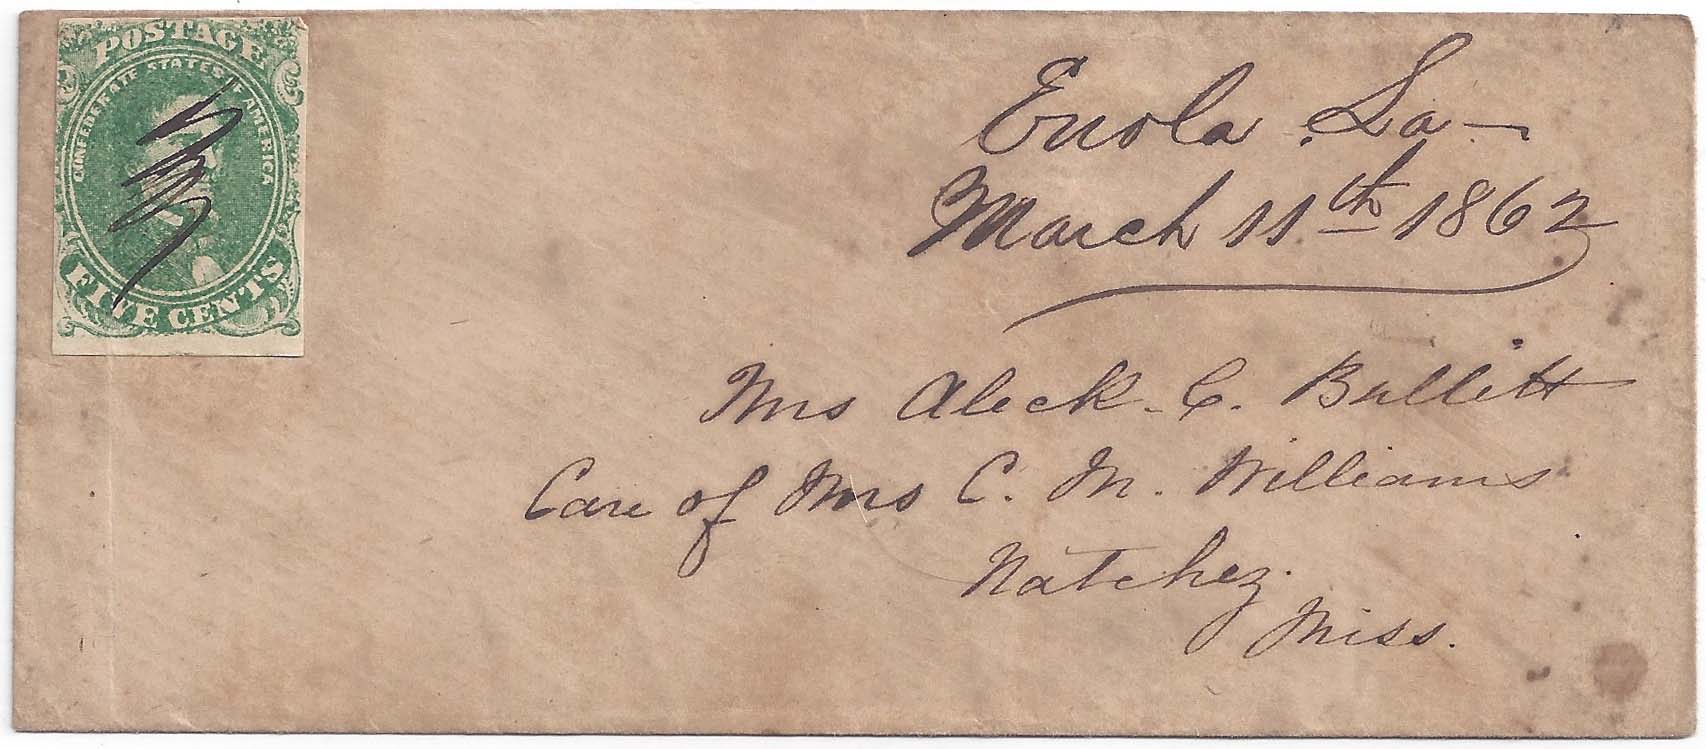 POSTAGE
CONFEDERATE STATES OF AMERICA
FIVE CENTS
Enola La —
March 11th 1862
Mrs Aleck. C. Bullitt
Care of Mrs C. M. Williams
Natchez.
Miss.